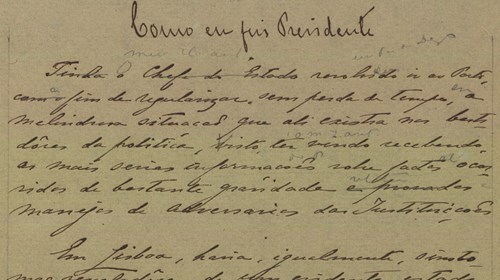 Como eu fui Presidente
Tinha o Chefe do Estado resolvido ir ao Porto,
com o fim de regularizar, sem perda de tempo, a
melindrosa situação que ali existia nos basti-
dôres da politica, visto ter vindo recebendo
as mais serias informações sobre factos ocor-
ridos de bastante gravidade e
manejos de adversarios das Instituicões
Em Lisboa, havia, igualmente,